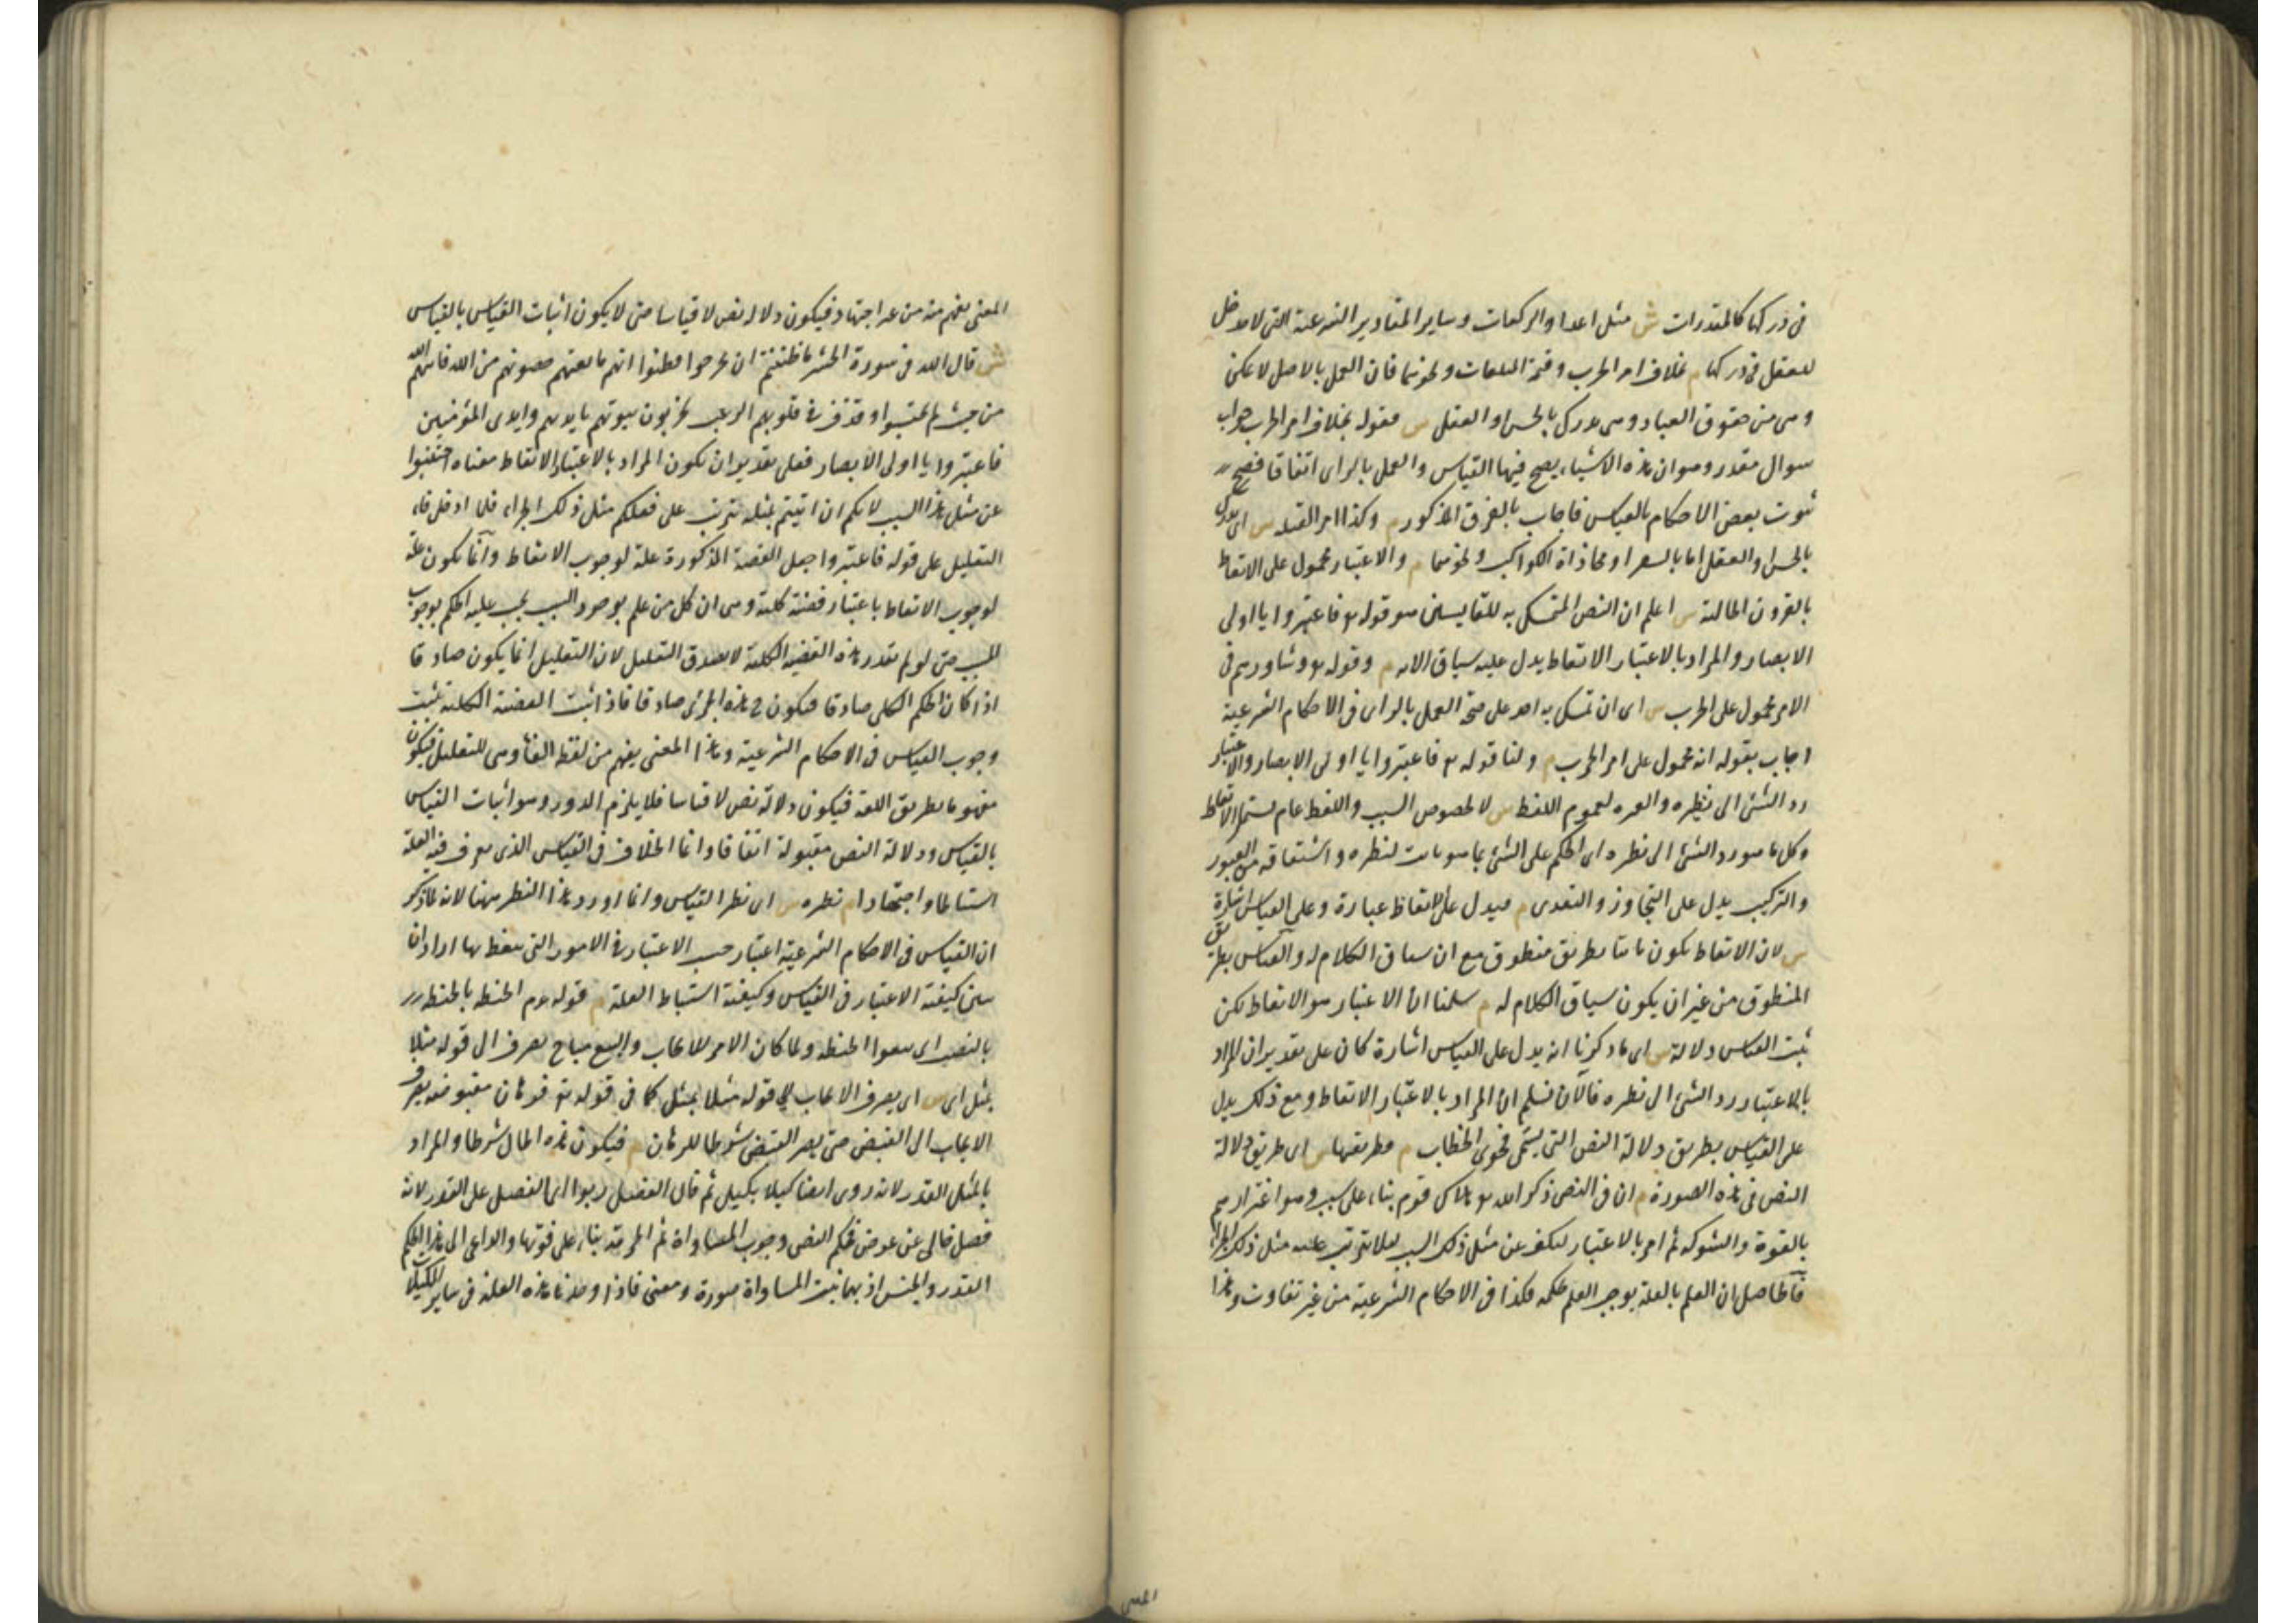 فى دركها كالمقدرات ش مثل اعداد الركعات وساير المقادير الشرعية التى لا مدخل
للعقل فى دركها م بخلاف امر الحرب وقيم المتلفات ونحوهما فان العمل بالاصل لا يمكن
وهى من حقوق العباد وهى يدرك بالحس او العقل ش فقوله بخلاف امر الحرب جواب
سوال مقدر وهو ان هذه الاشياء يصح فيها القياس والعمل بالراى اتفاقا فصح
ثبوت بعض الاحكام بالقياس فاجاب بالفرق المذكور م وكذا امر القبلة ش اى يدرك
بالحس او العقل اما بالسفر او محاذاة الكواكب ونحوهما م والاعتبار محمول على الاتعاظ
بالقرون الخالية ش اعلم ان النص المتمسك به للقايسين هو قوله تع فاعتبروا يا اولى
الابصار والمراد بالاعتبار الاتعاظ يدل عليه سياق الاية م وقوله تع وشاورهم فى
الامر محمول على الحرب ش اى ان تمسك به احد على صحة العمل بالراى فى الاحكام الشرعية
اجاب بقوله انه محمول على امر الحرب م ولنا قوله تع فاعتبروا يا اولى الابصار والاعتبار
رد الشئ الى نظيره والعبرة لعموم اللفظ ش لا لخصوص السبب واللفظ عام يشتمل الاتعاظ
وكل ما هو رد الشئ الى نظيره اى الحكم على الشئ بما هو ثابت لنظيره واشتقاقه من العبور
والتركيب يدل على التجاوز والتعدى م فيدل على الاتعاظ عبارة وعلى القياس اشارة
ش لان الاتعاظ يكون ثابتا بطريق منطوق مع ان سياق الكلام له والقياس بطريق
المنطوق من غير ان يكون سياق الكلام له م سلمنا ان الاعتبار هو الاتعاظ لكن
يثبت القياس دلالة ش اى ما ذكرنا انه يدل على القياس اشارة كان على تقدير ان المراد
بالاعتبار رد الشئ الى نظيره فالآن نسلم ان المراد بالاعتبار الاتعاظ ومع ذلك يدل
على القياس بطريق دلالة النص التى يسمى فحوى الخطاب م وطريقها ش اى طريق دلالة
النص فى هذه الصورة م ان فى النص ذكر الله تع هلاك قوم بناء على سبب وهو اغترارهم
بالقوة والشوكة ثم امر بالاعتبار ليكف عن مثل ذلك السبب لئلا يترتب عليه مثل ذلك الجزاء
فالحاصل ان العلم بالعلة يوجب العلم بحكمه فكذا فى الاحكام الشرعية من غير تفاوت وهذا
المعنى
المعنى يفهم منه من غير اجتهاد فيكون دلالة نص لا قياسا حتى لا يكون اثبات القياس بالقياس
ش قال الله فى سورة الحشر ما ظننتم ان يخرجوا وظنوا انهم مانعتهم حصونهم من الله فاتيهم الله
من حيث لم يحتسبوا وقذف فى قلوبهم الرعب يخربون بيوتهم بايديهم وايدى المؤمنين
فاعتبروا يا اولى الابصار فعلى تقدير ان يكون المراد بالاعتبار الاتعاظ معناه اجتنبوا
عن مثل هذا السبب لانكم ان اتيتم بمثله يترتب على فعلكم مثل ذلك الجزاء فلما ادخل فاء
التعليل على قوله فاعتبروا جعل القصة المذكورة علة لوجوب الاتعاظ وانما يكون علة
لوجوب الاتعاظ باعتبار قضية كلية وهى ان كل من علم بوجود السبب يجب عليه الحكم بوجوب
المسبب حتى لو لم يقدر هذه القضية الكلية لا يصدق التعليل لان التعليل انما يكون صادقا
اذا كان الحكم الكلى صادقا فيكون ح هذا الجزئى صادقا فاذا ثبت القضية الكلية ثبت
وجوب القياس فى الاحكام الشرعية وهذا المعنى يفهم من لفظ الفاء وهى للتعليل فيكون
مفهوما بطريق اللغة فيكون دلالة نص لا قياسا فلا يلزم الدور وهو اثبات القياس
بالقياس ودلالة النص مقبولة اتفاقا وانما الخلاف فى القياس الذى يعرف فيه العلة
استنباطا واجتهادا م نظيره ش اى نظير القياس وانما اورد هذا النظير ههنا لانه لما ذكر
ان القياس فى الاحكام الشرعية اعتبار حسب الاعتبار فى الامور التى يتعظ بها اراد ان
يبين كيفية الاعتبار فى القياس وكيفية استنباط العلة م قوله عم الحنطة بالحنطة
بالنصب اى بيعوا الحنطة ولما كان الامر للايجاب والبيع مباح يصرف الى قوله مثلا
بمثل اى ش اى يصرف الايجاب الى قوله مثلا بمثل كما فى قوله تع فرهان مقبوضة يصرف
الايجاب الى القبض حتى يصير القبض شرطا للرهان م فيكون هذه الحال شرطا والمراد
بالمثل القدر لانه روى ايضا كيلا بكيل ثم قال الفضل ربوا اى الفضل على القدر لانه
فضل خالى عن عوض فحكم النص وجوب المساواة ثم الحرمة بناء على فوتها والداعى الى هذا الحكم
القدر والجنس اذ بهما يثبت المساواة صورة ومعنى فاذا وجدنا هذه العلة فى ساير المكيلات